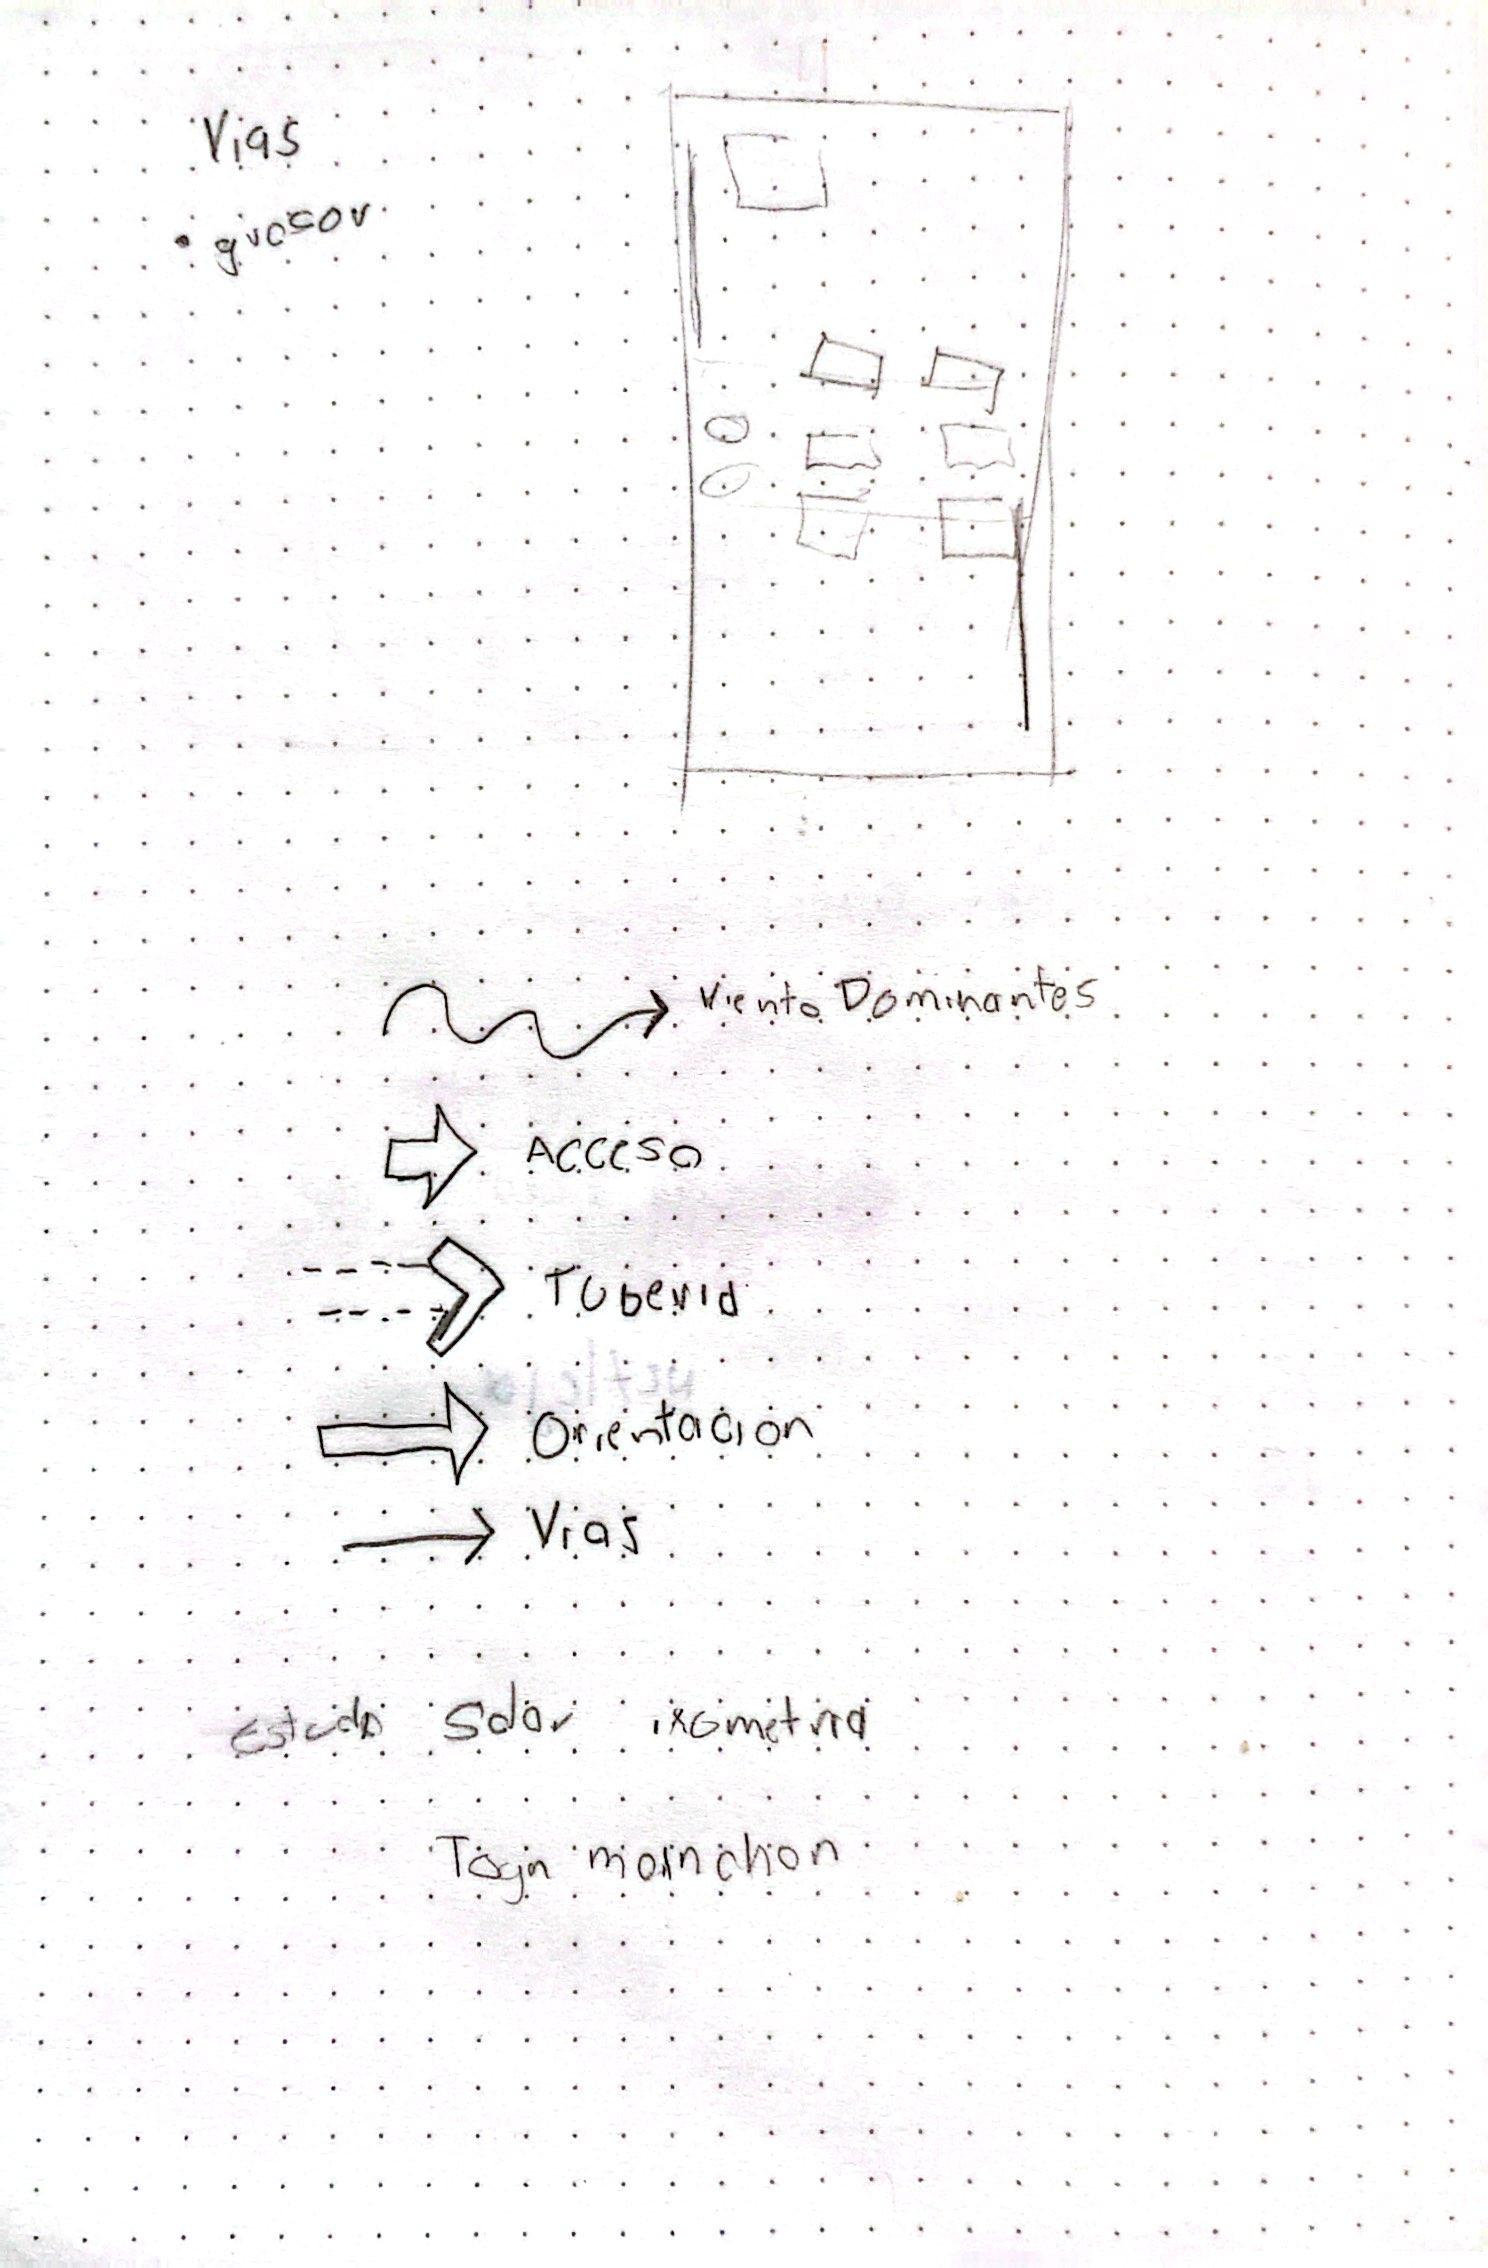 Vias
• grosor
Viento Dominantes
Acceso
Tuberia
Orientación
Vias
Estudio Solar ixometria